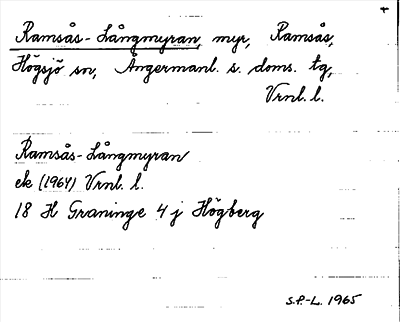 Ramsås-Långmyran, myr, Ramsås,
Högsjö sn, Ångermanl. s. doms. tg,
Vrnl. l.
Ramsås-Långmyran
ek (1964) Vrnl. l.
18 H Graninge 4 j Högberg
S.P.-L. 1965